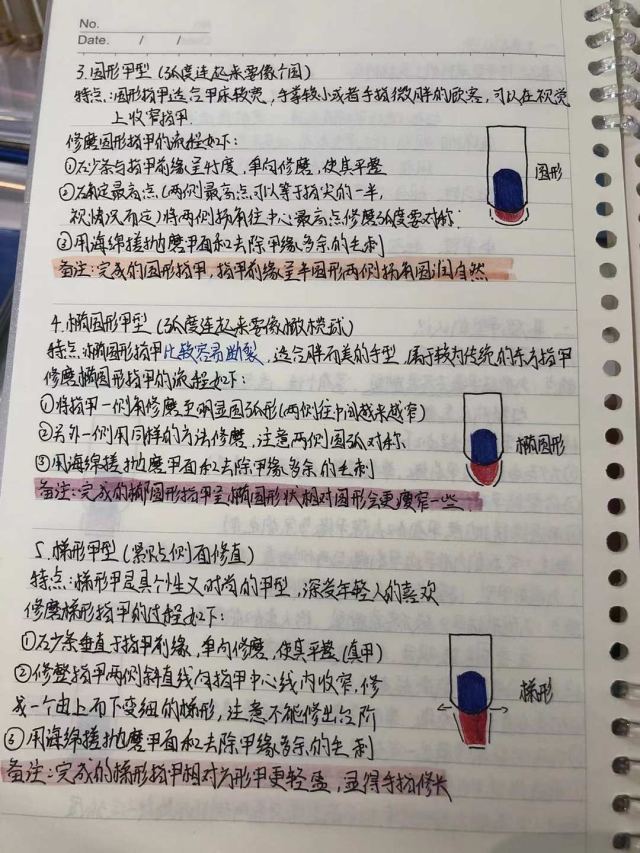 No.
Date.    /    /
3.圆形甲型(弧度连起来要像个圆)
特点:圆形指甲适合甲床较宽,手掌较小或者手指微胖的顾客,可以在视觉
上收窄指甲.
修磨圆形指甲的流程如下:
①砂条与指甲前缘呈45度,单向修磨,使其平整
②确定最高点(两侧最高点可以等于指尖的一半,
视情况而定)将两侧拐角往中心最高点修磨弧度要对称.
③用海绵搓抛磨甲面和去除甲缘多余的毛刺
备注:完成的圆形指甲,指甲前缘呈半圆形两侧拐角圆润自然
圆形
4.椭圆形甲型(弧度连起来要像橄榄球)
特点:椭圆形指甲比较容易断裂,适合胖而美的手型,属于较为传统的东方指甲
修磨椭圆形指甲的流程如下:
①将指甲一侧角修磨至明显圆弧形(两侧往中间越来越窄)
②另外一侧用同样的方法修磨,注意两侧圆弧对称
③用海绵搓抛磨甲面和去除甲缘多余的毛刺
椭圆形
备注:完成的椭圆形指甲呈椭圆形状相对圆形会更瘦窄一些
5.梯形甲型(景点侧面修直)
特点:梯形甲是具个性又时尚的甲型,深受年轻人的喜欢
修磨梯形指甲的过程如下:
①砂条垂直于指甲前缘,单向修磨,使其平整(真甲)
②修整指甲两侧斜直线向指甲中心线内收窄,修
成一个由上而下变细的梯形,注意不能修出台阶
③用海绵搓抛磨甲面和去除甲缘多余的毛刺
梯形
备注:完成的梯形指甲相对方形甲更轻盈,显得手指修长